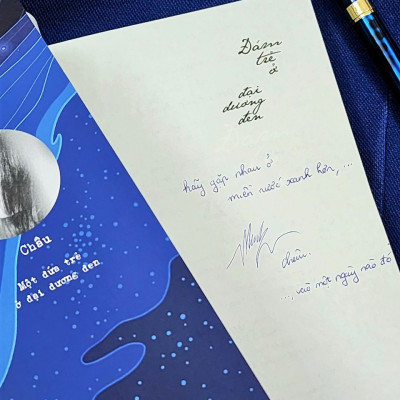 Đám
trẻ
ở
đại
dương
đen
hãy gặp nhau ở
miền nước xanh hơn, ...
Châu.
..., vào một ngày nào đó
Châu
Một đứa trẻ
ở đại dương đen.